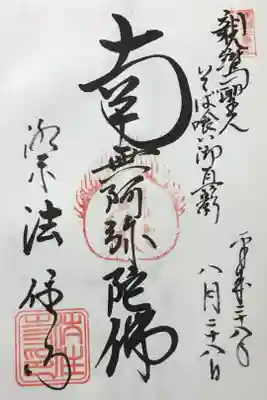 親鸞聖人
そば喰い御真影
平成二十八年
八月二十八日
南無阿弥陀佛
洛東 法住寺